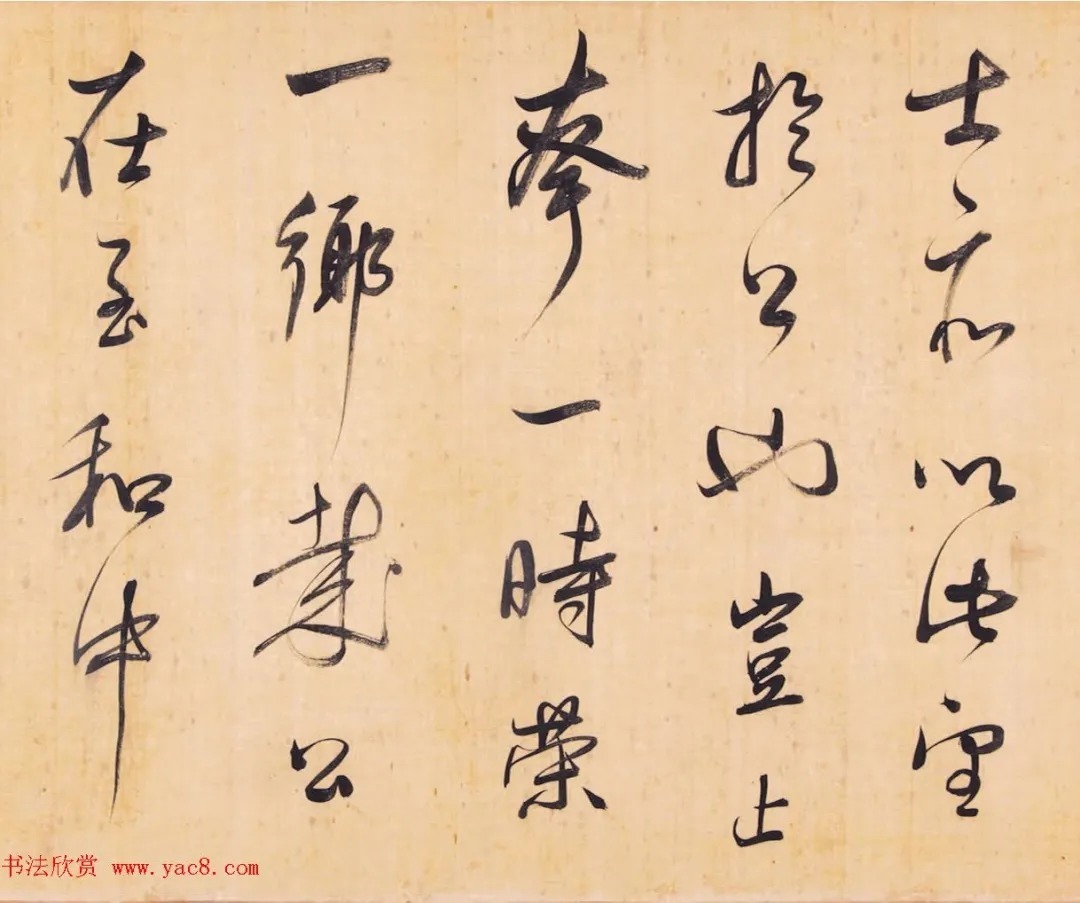 士亦以此望
於公也豈止
夸一時榮
一鄉哉公
在至和中
书法欣赏 www.yac8.com